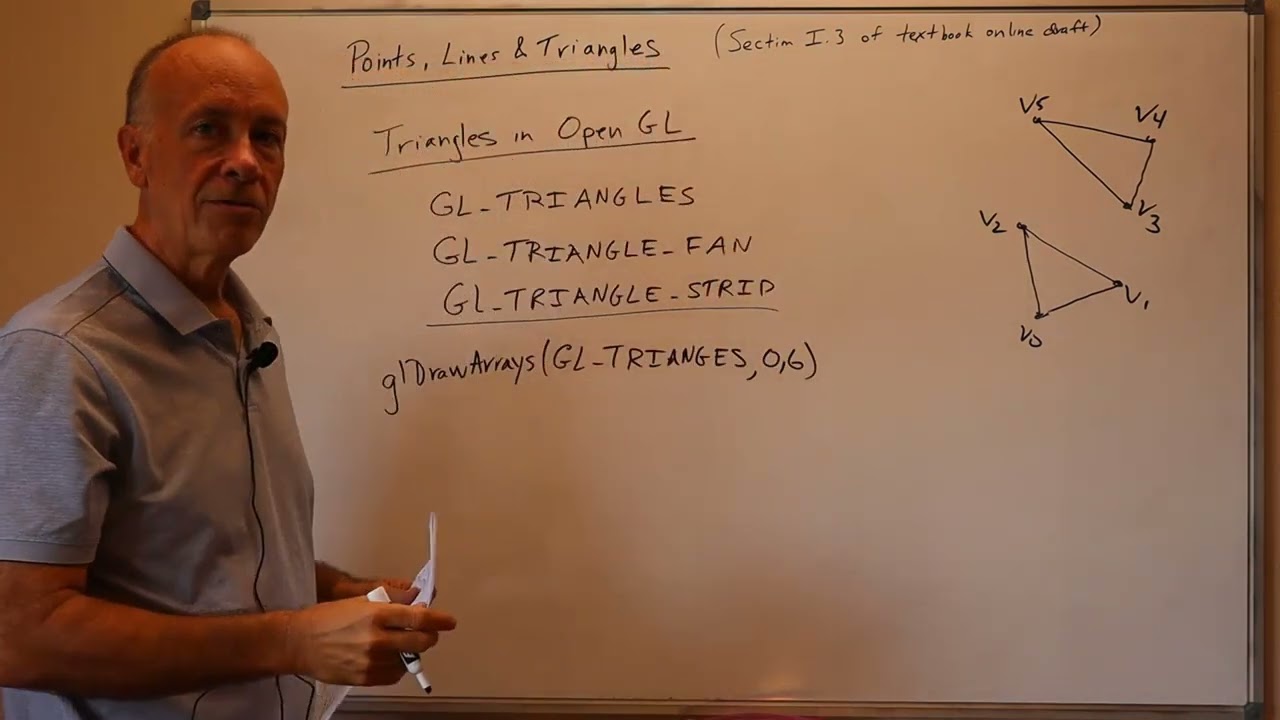 Points, Lines & Triangles (Section I.3 of textbook online draft)
Triangles in Open GL
GL_TRIANGLES
GL_TRIANGLE_FAN
GL_TRIANGLE_STRIP
glDrawArrays(GL_TRIANGES, 0,6)
V5
V4
V3
V2
V1
V0